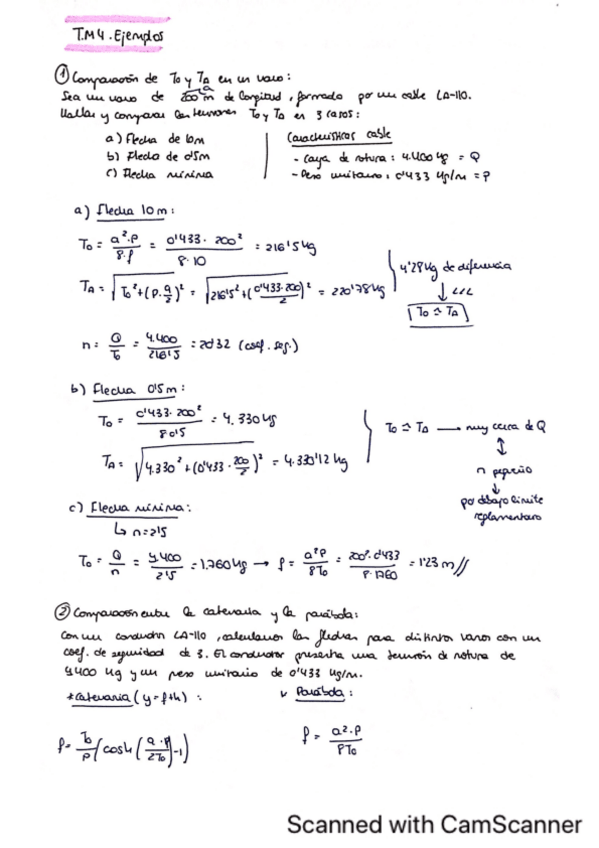 T.M4. Ejemplos
① Comparación de To y TA en un vano:
Sea un vano de 200 m de longitud, formado por un cable LA-110.
Hallar y comparar las tensiones To y TA en 3 casos:
a) Flecha de 10m
b) Flecha de 0'5m
c) Flecha mínima
Características cable
- Carga de rotura: 4.400 kg = Q
- Peso unitario: 0'433 kg/m = P
a) Flecha 10m:
To = a²·P / 8·f = 0'433 · 200² / 8·10 = 216'5 kg
TA = √(To² + (P·a/2)²) = √(216'5² + (0'433·200/2)²) = 220'78 kg
4'28 kg de diferencia
↓ <<<
To ≃ TA
n = Q/To = 4.400/216'5 = 20'32 (coef. seg.)
b) Flecha 0'5m:
To = 0'433·200² / 8·0'5 = 4.330 kg
TA = √(4.330² + (0'433·200/2)²) = 4.330'12 kg
To ≃ TA → muy cerca de Q
↕
n pequeño
↓
por debajo límite
reglamentario
c) Flecha mínima:
↳ n=2'5
To = Q/n = 4.400/2'5 = 1.760 kg → f = a²P/8To = 200²·0'433/8·1760 = 1'23 m //
② Comparación entre la catenaria y la parábola:
Con un conductor LA-110, calculamos las flechas para distintos vanos con un
coef. de seguridad de 3. El conductor presenta una tensión de rotura de
4400 kg y un peso unitario de 0'433 kg/m.
* Catenaria (y = f+h) :
v Parábola :
f = To/P (cosh (a·P/2To) -1)
f = a²·P / 8To
Scanned with CamScanner